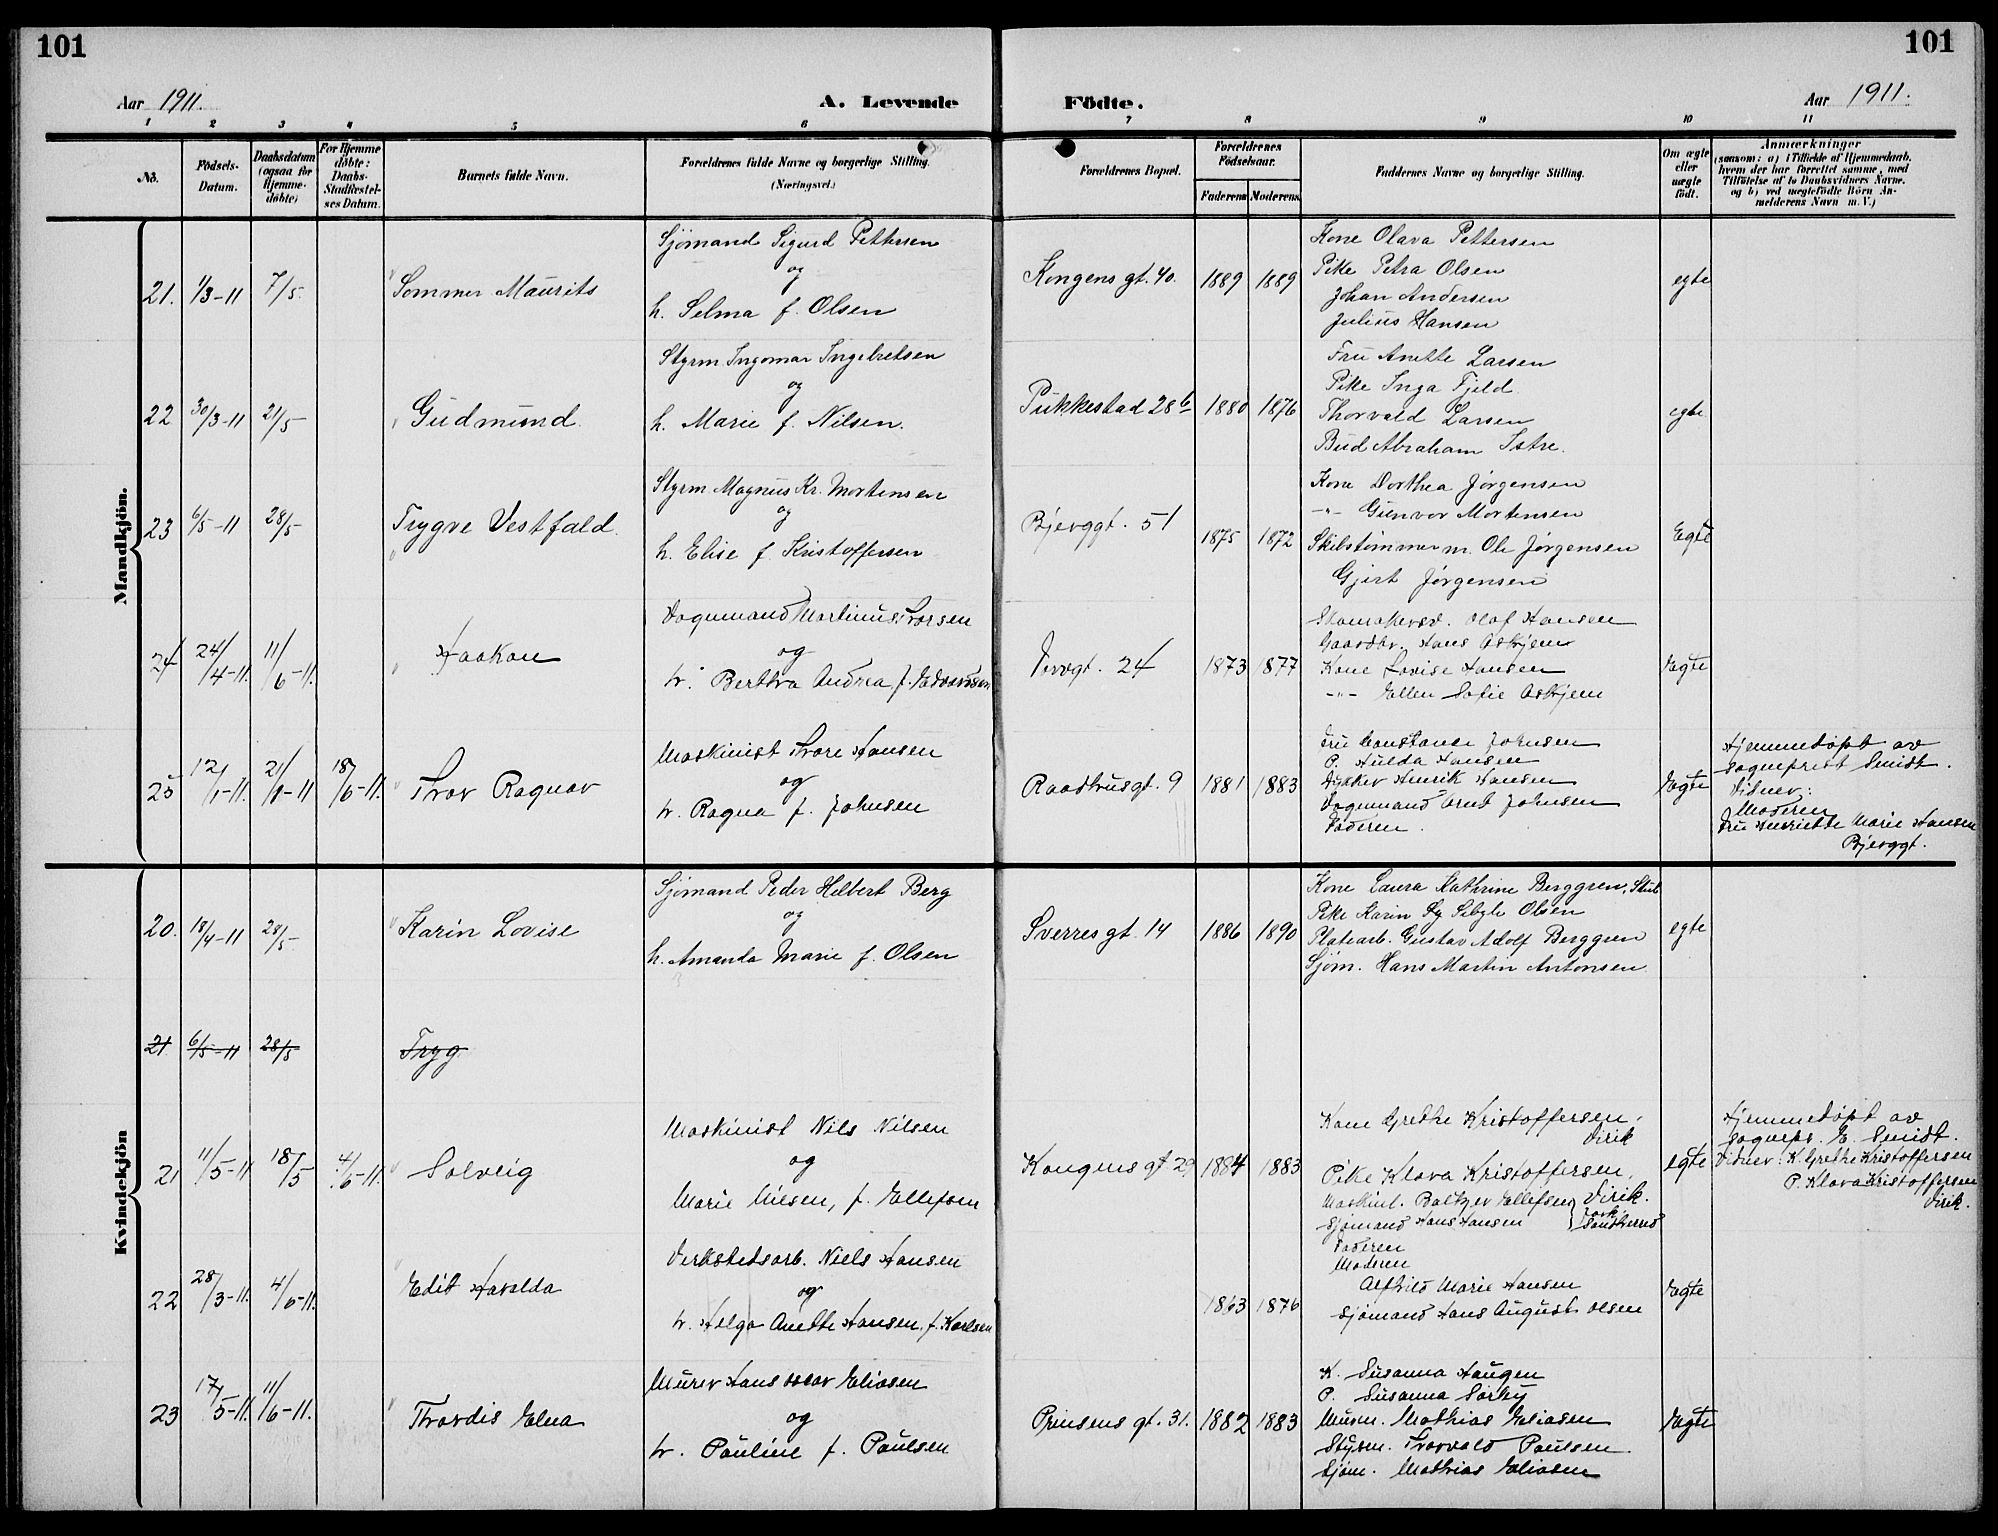 101
101
Aar 1911.
A. Levende
Födte.
Aar 1911.
1 2 3 4 5 6 7 8 9 10 11
No.
Födsels-
Datum.
Daabsdatum
(ogsaa for
Hjemme-
døbte)
For Hjemme
døbte:
Daabs-
Stadfæstel-
ses Datum.
Barnets fulde Navn.
Forældrenes fulde Navne og borgerlige Stilling.
(Næringsvei.)
Forældrenes Bopæl.
Forældrenes
Fødselsaar.
Faderens
Moderens
Faddernes Navne og borgerlige Stilling.
Om ægte
eller
uægte
født.
Anmærkninger
(saasom: a) i Tilfælde af Hjemmedaab,
hvem der har forrettet samme, med
Tilföielse af to Daabsvidners Navne,
og b) ved uægtefödte Börn An-
melderens Navn m. V.)
Mandkjön.
21. 1/3-11 7/5.
Sommer Maurits
Sjømand Sigurd Pettersen
og
h. Selma f. Olsen
Kongens gt. 40.
1889 1889
Kone Olava Pettersen
Pike Petra Olsen
Johan Andersen
Julius Hansen
egte
22 30/3-11 21/5
Gudmund.
Styrm Ingomar Ingebretsen
og
h. Marie f. Nilsen.
Pukkestad 28b
1880 1876
Fru Anette Larsen
Pike Inga Fjeld
Thorvald Larsen
Bud Abraham Istre.
egte
23 6/5-11 28/5
Trygve Vestfald.
Styrm Magnus Kr. Mortensen
og
h. Elise f. Kristoffersen
Bjerggt. 51
1875 1872
Kone Dorthea Jørgensen
-"- Gunvor Mortensen
Skibstømmerm. Ole Jørgensen
Gjert Jørgensen
Egte
24 24/4-11. 11/6-11.
Haakon
Vognmand Martinius Thorsen
og
h. Berthea Andrea f. Edvardsen
Torvgt. 24
1873 1877
Skomakersv. Olaf Hansen
Gaardbr. Hans Askjem
Kone Lovise Hansen
-"- Ellen Sofie Askjem
Egte
25 12/1-11. 21/1-11 18/6-11.
Thor Ragnar
Maskinist Thore Hansen
og
h. Ragna f. Johnsen
Raadhusgt. 9
1881 1883
Fru Constance Johnsen
P. Hulda Hansen
Dykker Henrik Hansen
Vognmand Arnt Johnsen
Faderen.
Egte
Hjemmedøpt av
Sogneprest Smidt.
Vidner:
Moderen
Fru Henriette Marie Hansen
Bjerggt.
Kvindekjön
20. 18/4-11 28/5
Karin Lovise
Sjømand Peder Helbert Berg
og
h. Amanda Marie f. Olsen
Sverres gt. 14
1886 1890
Kone Laura Kathrine Berggren, Stub
Pike Karin Sibyle Olsen
Platearb. Gustav Adolf Berggren
Sjøm. Hans Martin Antonsen
egte
21 6/5-11 28/5
Tryg
21 11/5-11 18/5 4/6-11.
Solveig
Maskinist Nils Nilsen
og
Marie Nilsen, f. Ellefsen
Kongens gt 29
1884 1883
Kone Grethe Kristoffersen,
Virik
Pike Klara Kristoffersen,
Virik.
Maskinl. Baltzer Ellefsen
Sjømand Hans Hansen
Sandherred
Faderen
Moderen
egte
Hjemmedøpt av
Sognepr. E. Smidt.
Vidner: K. Grethe Kristoffersen
P. Klara Kristoffersen
Virik.
22 28/3-11. 4/6-11.
Edit Havalda
Verkstedsarb. Niels Hansen
og
h. Helga Anette Hansen, f. Karlsen
1863 1876
Alfhild Marie Hansen
Sjømand Hans August Olsen
Egte
23 17/5-11. 11/6-11.
Thordis Elna
Murer Hans Oskar Eliasen
og
h. Pauline f. Paulsen
Prinsens gt. 31.
1882 1883
K. Susanna Haugen
P. Susanna Sørby
Murm. Mathias Eliasen
Styrm. Thorvald Paulsen
Sjøm. Mathias Eliasen
Egte